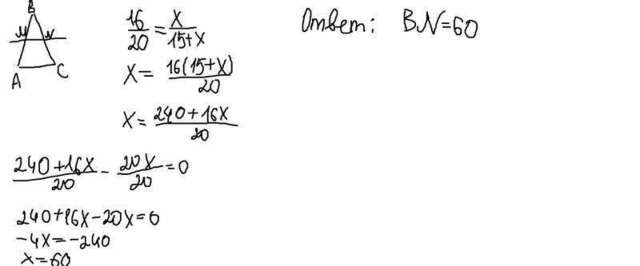 B
M N
A C
16/20 = x/15+x
x = 16(15+x)/20
x = 240+16x/20
240+16x/20 - 20x/20 = 0
240+16x-20x=0
-4x=-240
x=60
Ответ: BN=60